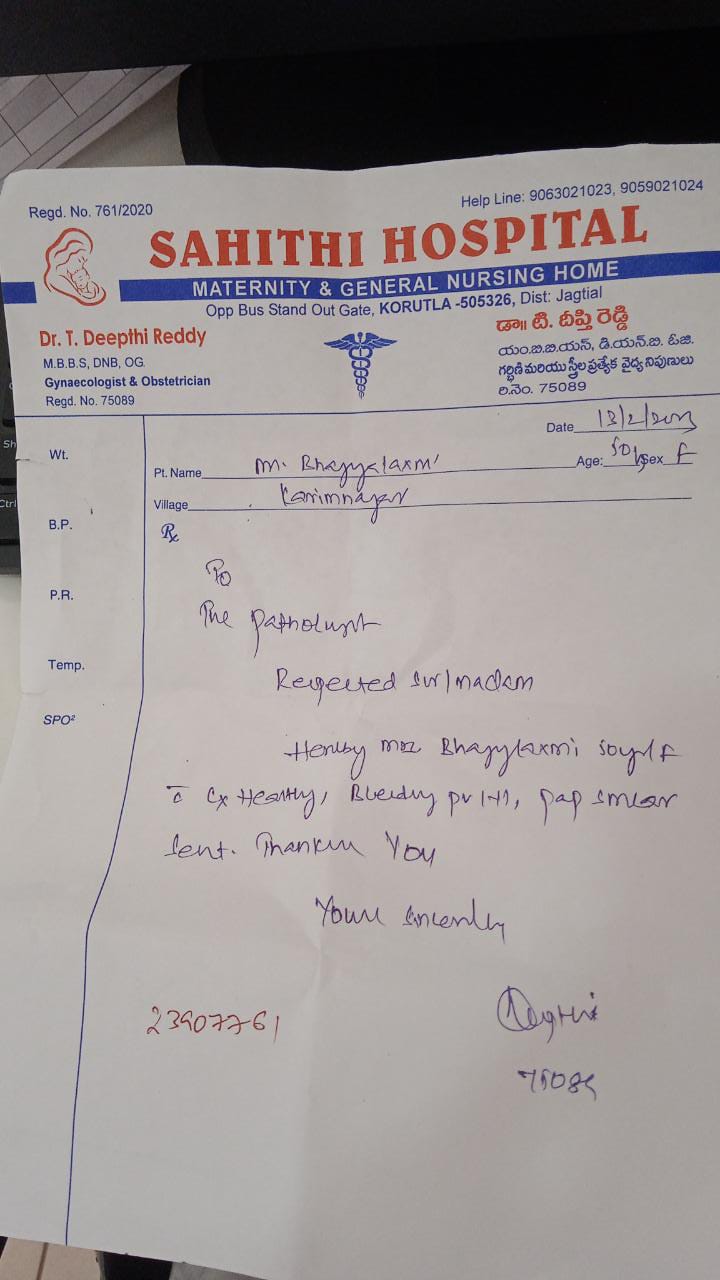 Regd. No. 761/2020
Help Line: 9063021023, 9059021024
SAHITHI HOSPITAL
MATERNITY & GENERAL NURSING HOME
Opp Bus Stand Out Gate, KORUTLA -505326, Dist: Jagtial
Dr. T. Deepthi Reddy
M.B.B.S, DNB, OG
Gynaecologist & Obstetrician
Regd. No. 75089
డా॥ టి. దీప్తి రెడ్డి
యం.బి.బి.యస్, డి.యన్.బి. ఓ.జి.
గర్భిణి మరియు స్త్రీల ప్రత్యేక వైద్య నిపుణులు
రి.నెం. 75089
Date 13/2/2023
Pt. Name M. Bhagyalaxmi Age: 50 Sex F
Village Karimnagar
Wt.
B.P.
P.R.
Temp.
SPO²
Rx
To
The pathologist
Respected Sir/madam
Bhagylaxmi 50yr/F
c̄ Cx Healthy, Bleeding pv, pap smear
sent. You
Yours sincerely
23907761
75089